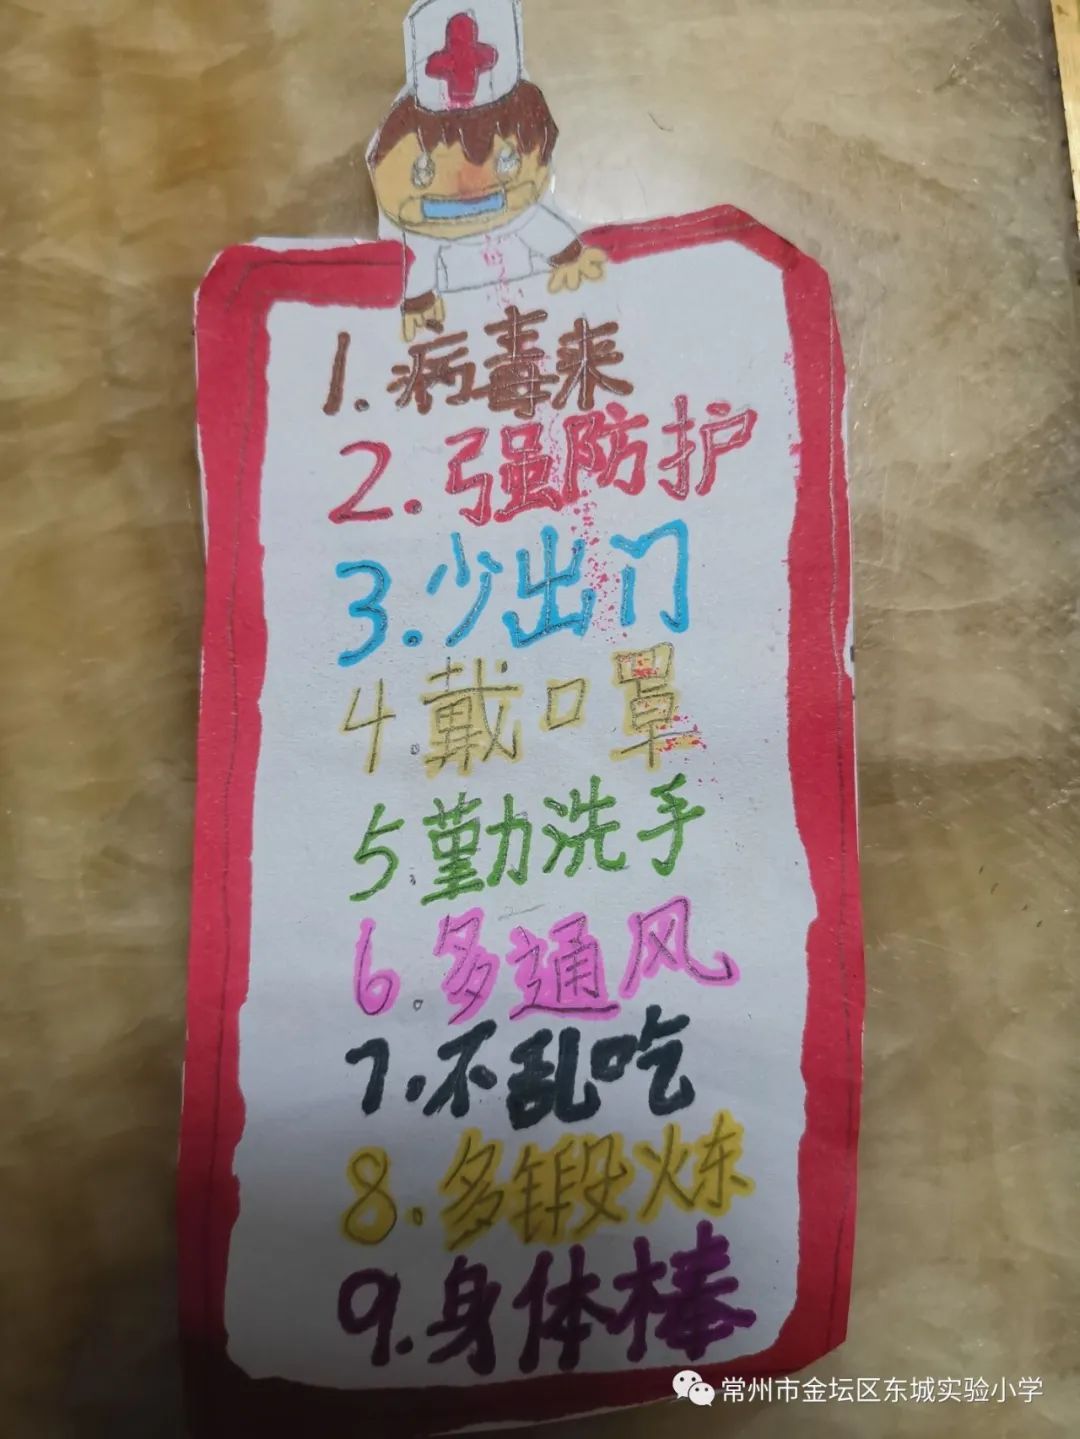 1.病毒来
2.强防护
3.少出门
4.戴口罩
5.勤洗手
6.多通风
7.不乱吃
8.多锻炼
9.身体棒
常州市金坛区东城实验小学